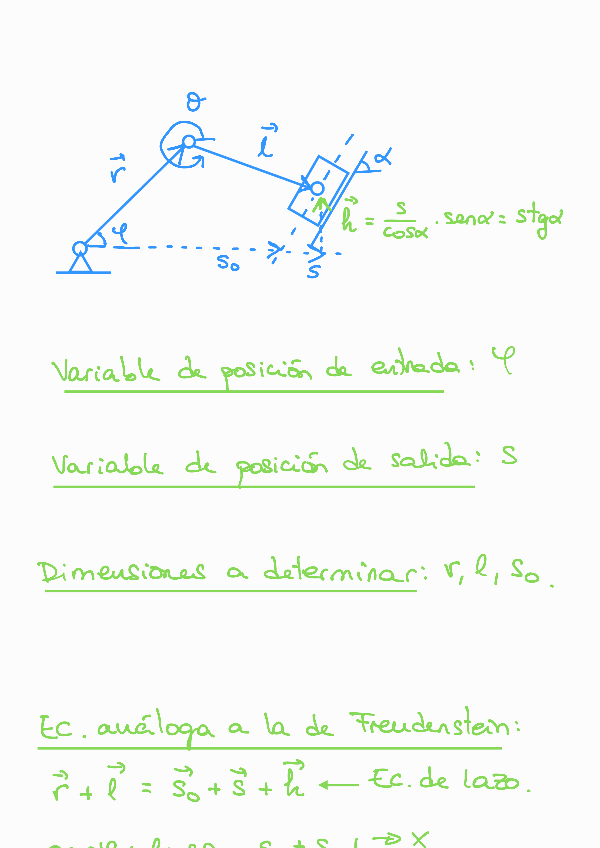 θ
r⃗
l⃗
α
φ
h⃗ = s/cosα · senα = s tgα
s₀
s
Variable de posición de entrada: φ
Variable de posición de salida: s
Dimensiones a determinar: r, l, s₀.
Ec. análoga a la de Freudenstein:
r⃗ + l⃗ = s⃗₀ + s⃗ + h⃗ ← Ec. de lazo.
→ x